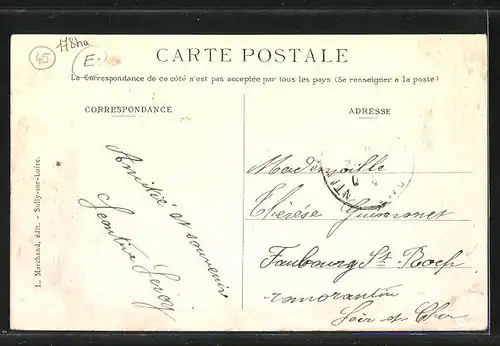 45
178ha
E.
CARTE POSTALE
La Correspondance de ce côté n'est pas acceptée par tous les pays (Se renseigner à la poste)
CORRESPONDANCE
ADRESSE
L. Marchand, édit. - Sully-sur-Loire.
Amitié et souvenir
Mademoiselle
Thérèse
Faubourg St Roch
romorantin
Loir et Cher